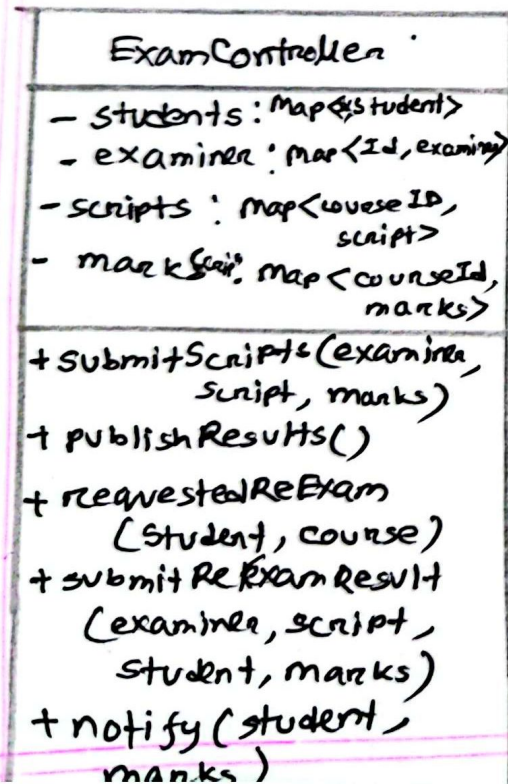 ExamController
- students : Map<Id, student>
- examiner : Map<Id, examiner>
- scripts : Map<courseID,
script>
- mark : Map<courseId,
marks>
+ submitScripts (examiner,
script, marks)
+ publishResults()
+ requestedReExam
(student, course)
+ submitReExamResult
(examiner, script,
student, marks)
+ notify (student,
marks)